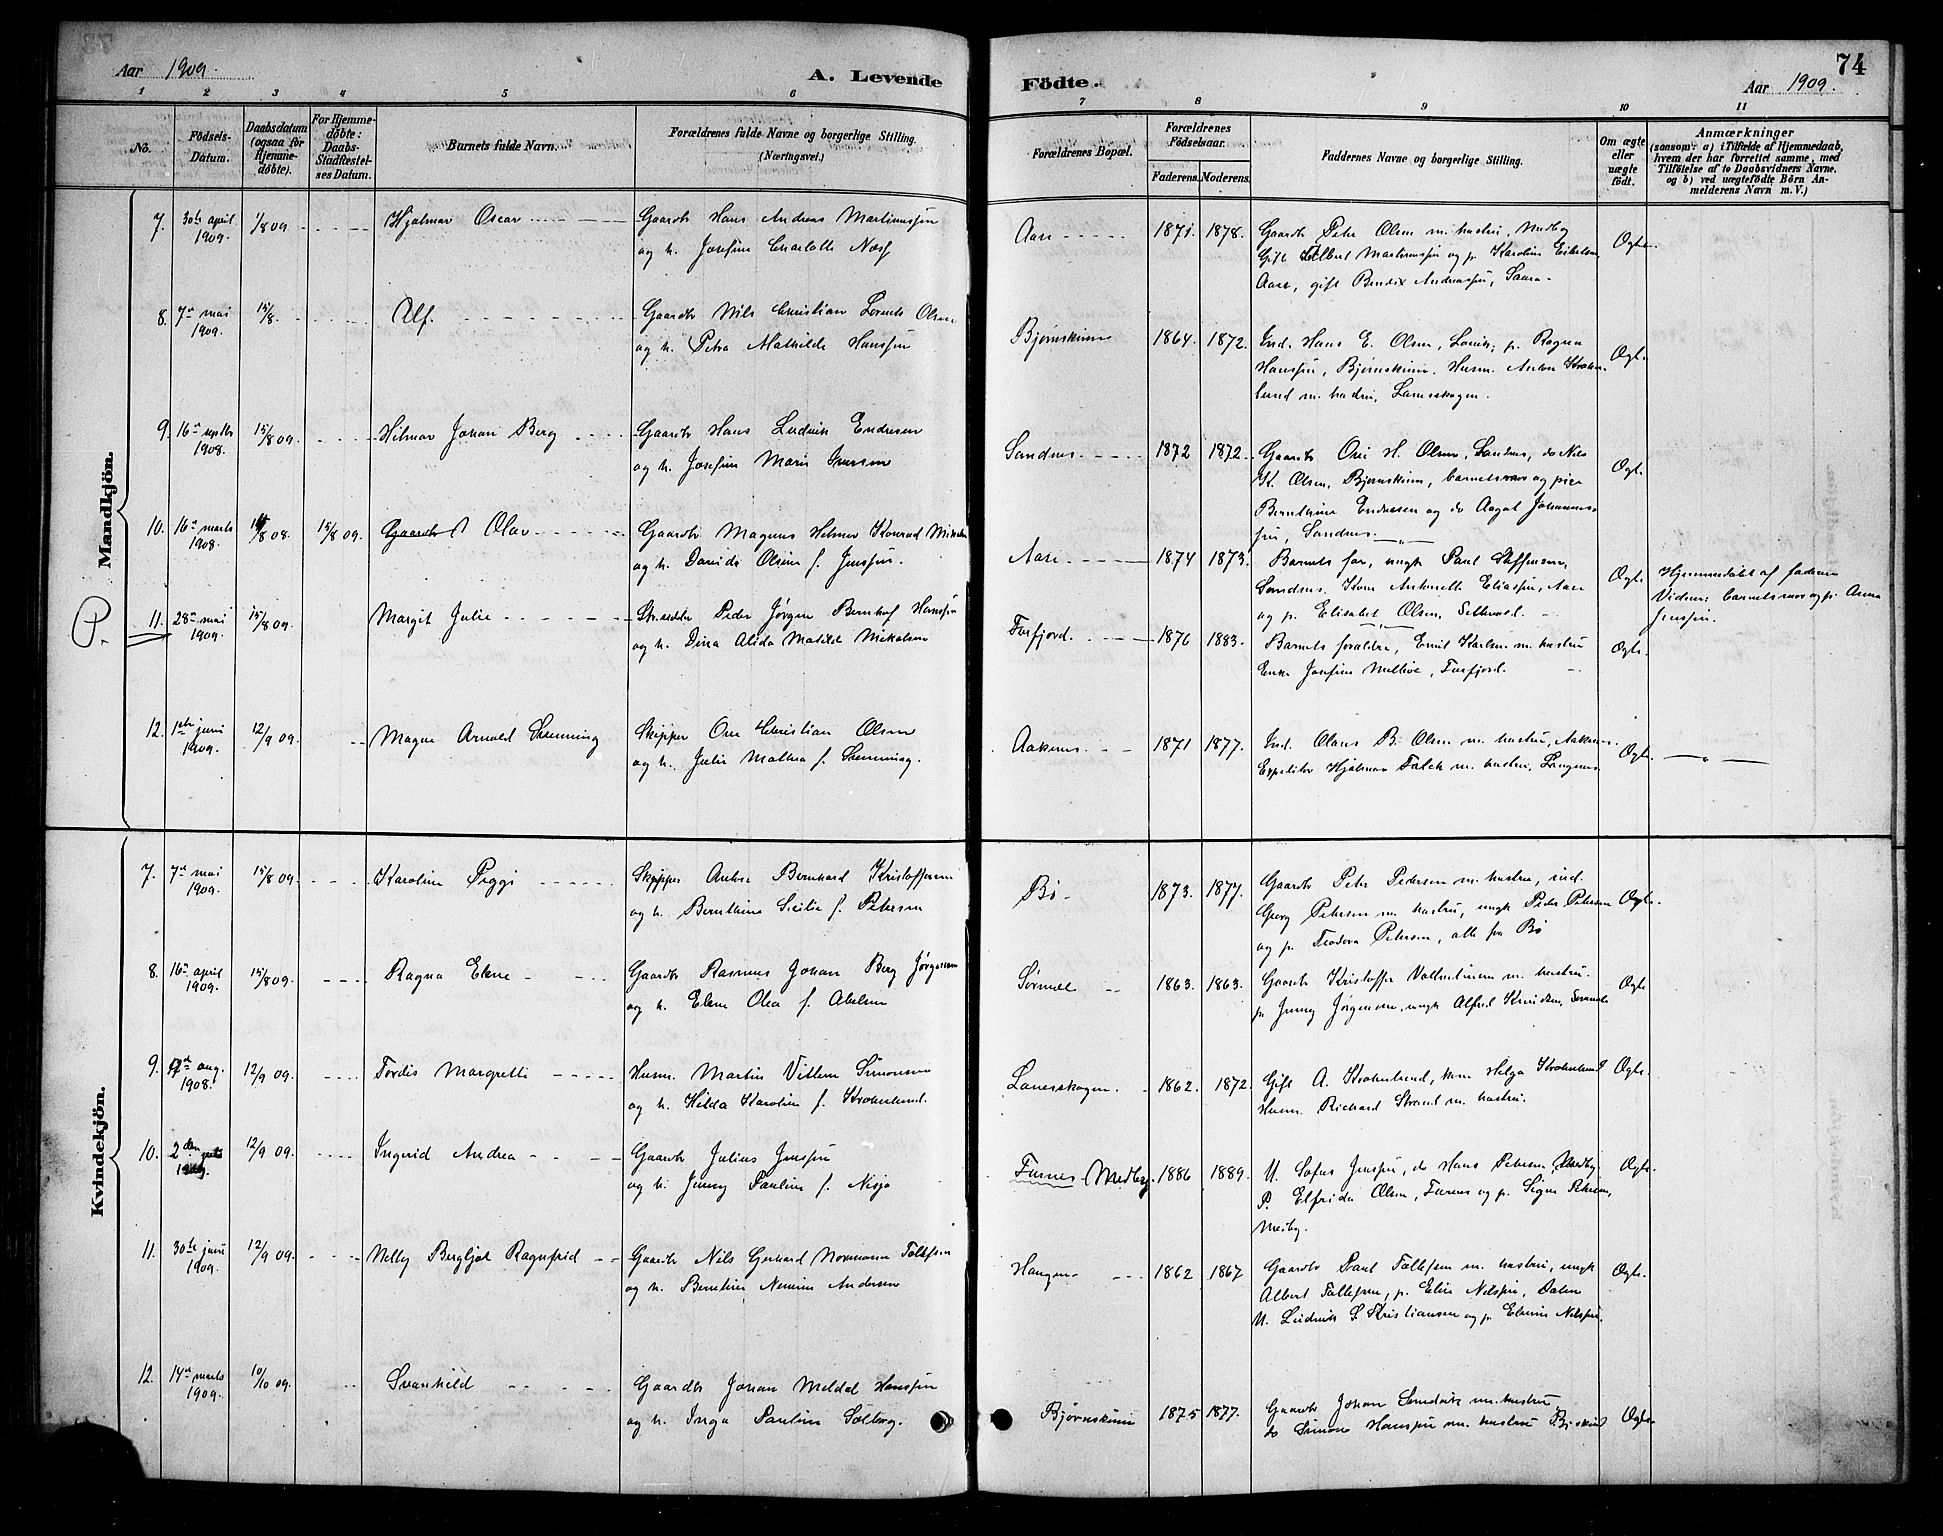 Aar 1909.
A. Levende
Födte.
Aar 1909.
74
1 2 3 4 5 6
7 8 9 10 11
No.
Födsels-
Datum.
Daabsdatum
(ogsaa for
Hjemme-
döbte).
For Hjemme-
döbte:
Daabs-
Stadfæstel-
ses Datum.
Barnets fulde Navn.
Forældrenes fulde Navne og borgerlige Stilling.
(Næringsvei.)
Forældrenes Bopæl.
Forældrenes
Födselsaar.
Faderens. Moderens.
Faddernes Navne og borgerlige Stilling.
Om ægte
eller
uægte
födt.
Anmærkninger
(saasom: a) i Tilfælde af Hjemmedaab,
hvem der har forrettet samme, med
Tilföielse af to Daabsvidners Navne,
og b) ved uægtefödte Börn An-
melderens Navn m. V.)
Mandkjön.
7. 30te april 1909. 1/8 09 Hjalmar Oscar
Gaardb Hans Andreas Martinussen
og h. Josefine Charlotte Næss
Aase 1871. 1878.
Gaardb Peter Olsen m. hustru, Medby
Gift Albert Martinussen og p. Karoline Eriksen,
Aase, gift Bendix Andreassen, Saura
Ægte.
8. 7de mai 1909. 15/8. Alf.
Gaardb Nils Christian Lorentz Olsen
og h. Petra Mathilde Hanssen
Bjørnskinn 1864. 1872.
Ind. Hans E. Olsen, p. Ragna
Hanssen, Bjørnskinn. Husm. Anton Krohn-
lund m. hustru, Lanesskogen.
Ægte
9. 16de septbr 1908. 15/8 09. Hilmar Johan Berg
Gaardb Hans Ludvik Endresen
og h. Josefine Marie Iversen
Sandnes. 1872 1872.
Gaardb Ove H. Olsen, Sandnes, do Nils
K. Olsen, Bjørnskinn, barnets mor og piger
Bernthine Endresen og do Aagot Johannes-
sen, Sandnes.
Ægte
10. 16de marts 1908. /8 08. 15/8 09. Gaardb Olav
Gaardb Magnus Helmer Konrad Mikalsen
og h. Davida Olsine f. Jenssen.
Aase 1874 1873.
Barnets far, ungk Paul Steffensen,
Sandnes. Kone Antonette Eliassen, Aase
og p. Elisabet Olsen,
Ægte
Hjemmedøbt af faderen
Vidner: barnets mor og p. Anna
Jenssen.
P.
11. 28de mai 1909. 15/8 09. Margit Julie
Peder Jørgen Bernhof Hanssen
og h. Dina Alida Matilde Mikalsen
Forfjord. 1876 1883.
Barnets foraldre, Emil Karlsen m. hustru
Enke Josefine Forfjord.
Ægte.
12. 1ste juni 1909. 12/9 09. Magne Arnold Remming
Skipper Ove Christian Olsen
og h. Julie Mathea f.
Aaknes. 1871 1877.
Ind. Olaus B. Olsen m. hustru, Aaknes.
Expeditør Hjalmar Falck m. hustru, Langnes
Ægte.
Kvindekjön.
7. 7de mai 1909. 15/8 09. Karoline Piggi
Skipper Anton Bernhard Kristoffersen
og h. Bernthine Sicilie f. Petersen
Bø 1873. 1877.
Gaardb Peter Pedersen m. hustru, ind.
Georg Petersen m. hustru, ungk Peder Petersen
og p. Teodora Petersen, alle fra Bø
Ægte.
8. 16de april 1909. 15/8 09. Ragna Elene
Gaardb Rasmus Johan Berg Jørgensen
og h. Elene Olea f. Abelsen
Sørmæle 1863. 1863.
Gaardb Kristoffer m. hustru.
p. Jenny Jørgensen, ungk Alfred Knudsen, Sørmæle
Ægte
9. aug. 1908. 12/9 09. Tordis Margrethe
Husm. Martin Villem Simonsen
og h. Hilda Karoline f. Krohnlund.
Lanesskogen. 1862. 1872.
Gift A. Krohnlund, kone Helga Krohnlund
Husm. Richard Strand m. hustru.
Ægte.
10. 2den 1909. 12/9 09. Ingerid Andrea
Gaardb Julius Jenssen
og h. Jenny Pauline f. Nesjø
Furnes Medby. 1886 1889.
U. Sofus Jenssen, do Hans Petersen, Medby
P. Elfrida Olsen, Furnes og p. Signe Petersen,
Medby.
Ægte.
11. 30te juni 1909. 12/9 09. Nelly Bergljot Ragnfrid
Gaardb Nils Gerhard Normann Tollefsen
og h. Nimine Andersen
Haugen 1862 1867
Gaardb Paul Tollefsen m. hustru, ungk
Albert Tollefsen, p. Elise Nilssen, Dalen
U. Ludvik S. Kristiansen og p. Nilssen.
Ægte.
12. 14de marts 1909. 10/10 09. Svanhild
Gaardb Johan Meldal Hanssen
og h. Inga Pauline Solberg.
Bjørnskinn 1875 1877.
Gaardb Johan m. hustru
do Simon Hanssen m. hustru Bj.skind
Ægte.